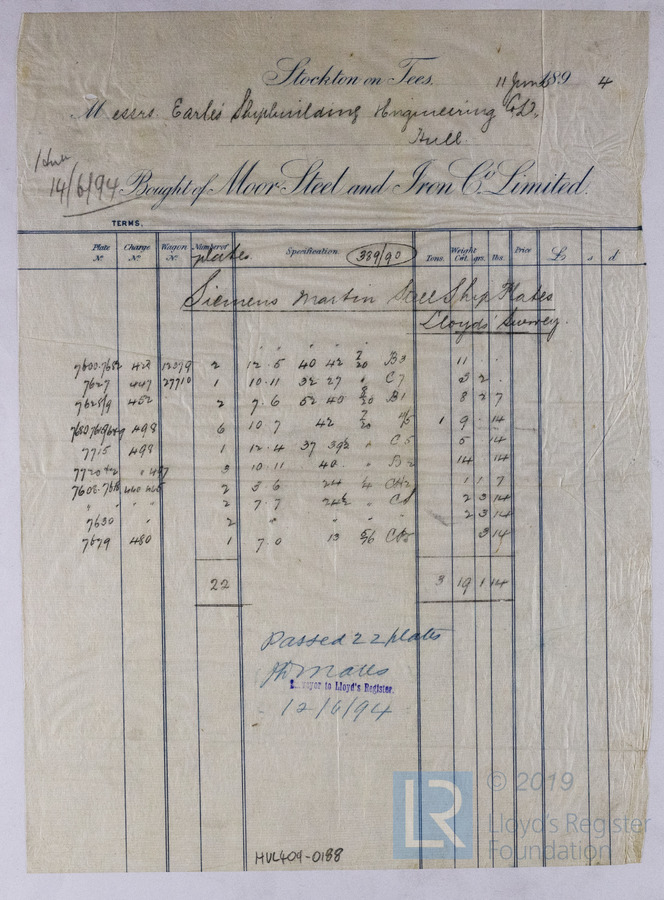 Stockton on Tees. 11 June 1894
Messrs Earle's Shipbuilding & Engineering Co Ld.
Hull.
14/6/94 Bought of Moor Steel and Iron Co. Limited.
TERMS.
Plate No. Charge No. Wagon No. Number of plates Specification. 389/90 Tons. Weight Cwt. qrs. lbs. Price £ s d
Siemens Martin Steel Ship Plates
Lloyds' Survey.
423 12079 2 12.5 40 42 7/20 B3 11 .
7627 447 27710 1 10.11 32 27 " C7 3 2 .
7628/9 452 2 7.6 52 40 8/20 B1 8 2 7
498 6 10.7 42 7/20 1 9 . 14
7715 498 1 12.4 37 39½ " C5 5 . 14
3 10.11 40 . " B2 14 . 14
2 3.6 24 CH2 1 1 7
" " " " 2 7.7 24½ " 2 3 14
7630 " 2 " " " " 2 3 14
7679 480 1 7.0 13 5/16 3 14
22 3 19 1 14
Passed 22 plates
Surveyor to Lloyd's Register.
12/6/94
HUL404-0188
LR
© 2019
Lloyd's Register
Foundation